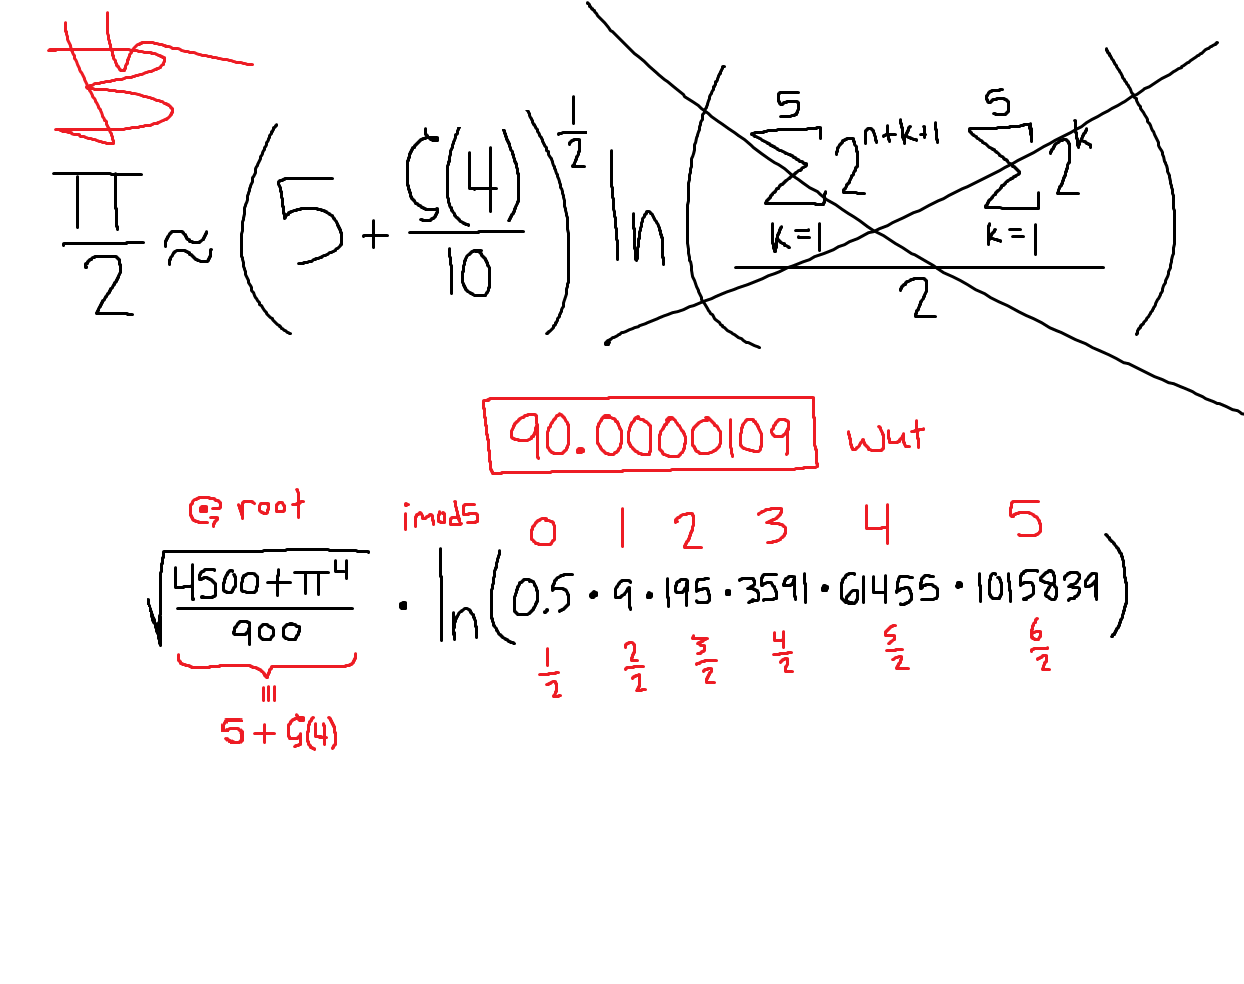 π/2 ≈ (5 + ζ(4)/10)^(1/2) ln( (5 Σ k=1 2^(n+k+1) 5 Σ k=1 2^k) / 2 )
90.0000109 wut
root imod5 0 1 2 3 4 5
√((4500+π^4)/900) · ln(0.5 · 9 · 195 · 3591 · 61455 · 1015839)
1/2 2/2 3/2 4/2 5/2 6/2
5 + ζ(4)